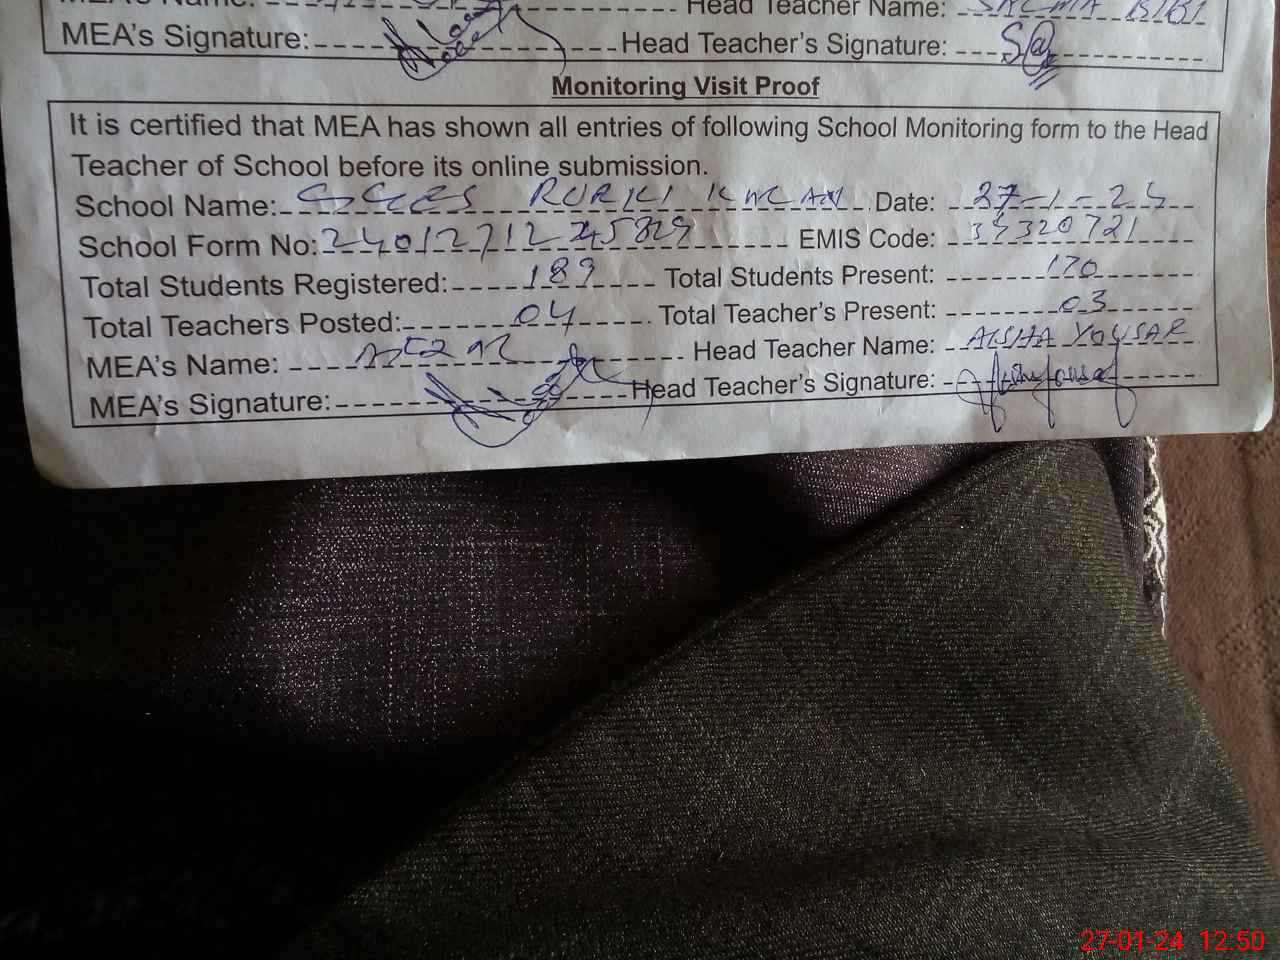 Head Teacher Name: SALMA BIBI
MEA's Signature: Head Teacher's Signature:
Monitoring Visit Proof
It is certified that MEA has shown all entries of following School Monitoring form to the Head
Teacher of School before its online submission.
School Name: GGES RURKI KHAN Date: 27-1-24
School Form No: 24012712245829 EMIS Code: 34320721
Total Students Registered: 189 Total Students Present: 170
Total Teachers Posted: 04 Total Teacher's Present: 03
MEA's Name: Head Teacher Name: AISHA YOUSAR
MEA's Signature: Head Teacher's Signature:
27-01-24 12:50